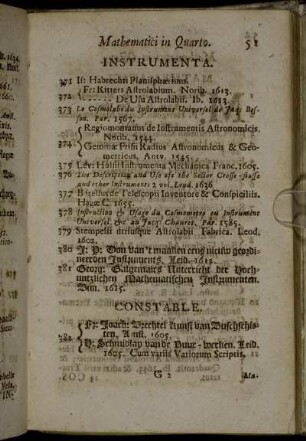 Mathematici in Quarto. 51
INSTRUMENTA.
371 If: Habrechti Planisphærium.
Fr: Ritters Astrolabium. Norib. 1613.
372 De Usu Astrolabii. Ib. 1613.
373 Le Cosmolabe du Instrument Universel de Jaqs Bes-
son. Par. 1567.
Regiomontanus de Instrumentis Astronomicis.
Norib. 1544.
374 Gemma Frisii Radius Astronomicus & Geo-
metricus, Antv. 1545.
375 Levi: Hulsii Instrumenta Mechanica Franc. 1605.
376 The Description and Use of the Sector Crosse-staffe
and other Instruments 2 vol. Lond. 1636
377 Borellus de Telescopii Inventore & Conspiciliis.
Hagæ C. 1655.
378 Instruction & Usage du Cosmometre ou Instrument
Universel, &c. au Jacq: Chauvet, Par. 1585.
379 Stempelii utriusque Astrolabii Fabrica. Leod.
1602.
380 J: P: Dou van't maaken eens nieuw geordi-
neerden Instruments. Leid. 1612.
381 Georg: Galgemaies Unterricht der Hoch-
nutzlichen Mathematischen Instrumenten.
1615.
CONSTABLE.
Joach: Brechtel Kunst van Busschschie-
ten, Amst. 1605.
382
Schmidlap van de Vuur-werken. Leid.
1605. Cum variis Variorum Scriptis.
G 2